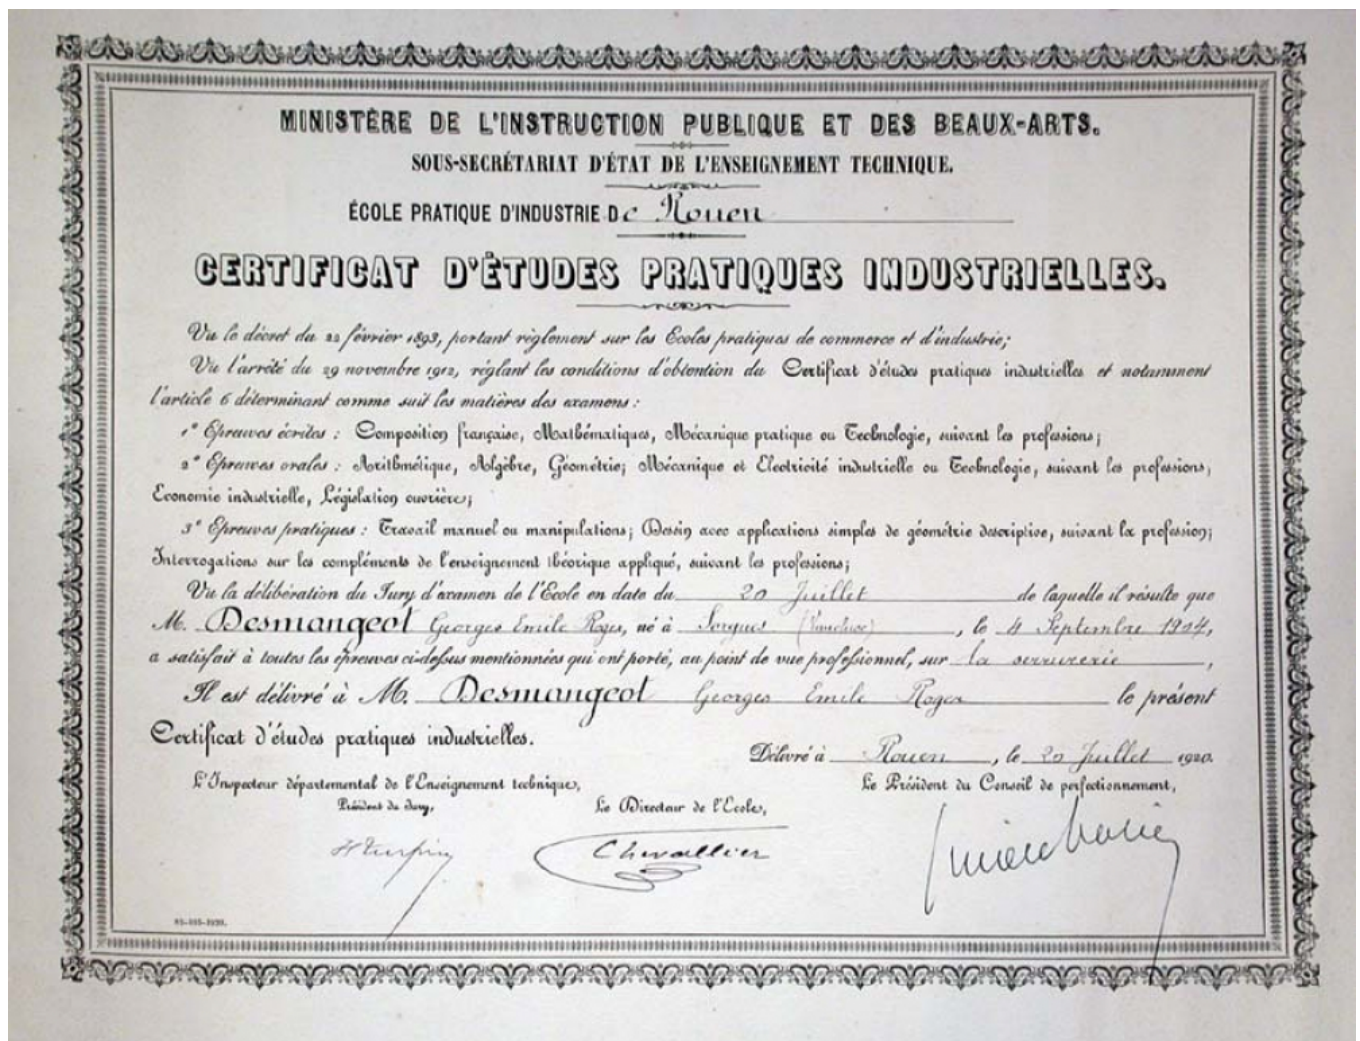 MINISTÈRE DE L'INSTRUCTION PUBLIQUE ET DES BEAUX-ARTS.
SOUS-SECRÉTARIAT D'ÉTAT DE L'ENSEIGNEMENT TECHNIQUE.
ÉCOLE PRATIQUE D'INDUSTRIE De Rouen
CERTIFICAT D'ÉTUDES PRATIQUES INDUSTRIELLES.
Vu le décret du 22 février 1893, portant règlement sur les Ecoles pratiques de commerce et d'industrie;
Vu l'arrêté du 29 novembre 1912, réglant les conditions d'obtention du Certificat d'études pratiques industrielles et notamment
l'article 6 déterminant comme suit les matières des examens :
1° Epreuves écrites : Composition française, Mathématiques, Mécanique pratique ou Technologie, suivant les professions;
2° Epreuves orales : Arithmétique, Algèbre, Géométrie; Mécanique et Electricité industrielle ou Technologie, suivant les professions,
Economie industrielle, Législation ouvrière;
3° Epreuves pratiques : Travail manuel ou manipulations; Dessin avec applications simples de géométrie descriptive, suivant la profession;
Interrogations sur les compléments de l'enseignement théorique appliqué, suivant les professions;
Vu la délibération du Jury d'examen de l'Ecole en date du 20 Juillet de laquelle il résulte que
M. Desmangeot Georges Emile Roger, né à Sorgues (Vaucluse), le 4 Septembre 1904,
a satisfait à toutes les épreuves ci-dessus mentionnées qui ont porté, au point de vue professionnel, sur la serrurerie,
Il est délivré à M. Desmangeot Georges Emile Roger le présent
Certificat d'études pratiques industrielles.
Délivré à Rouen, le 20 Juillet 1920.
L'Inspecteur départemental de l'Enseignement technique,
Président du Jury,
Le Directeur de l'Ecole,
Le Président du Conseil de perfectionnement,
Chevallier